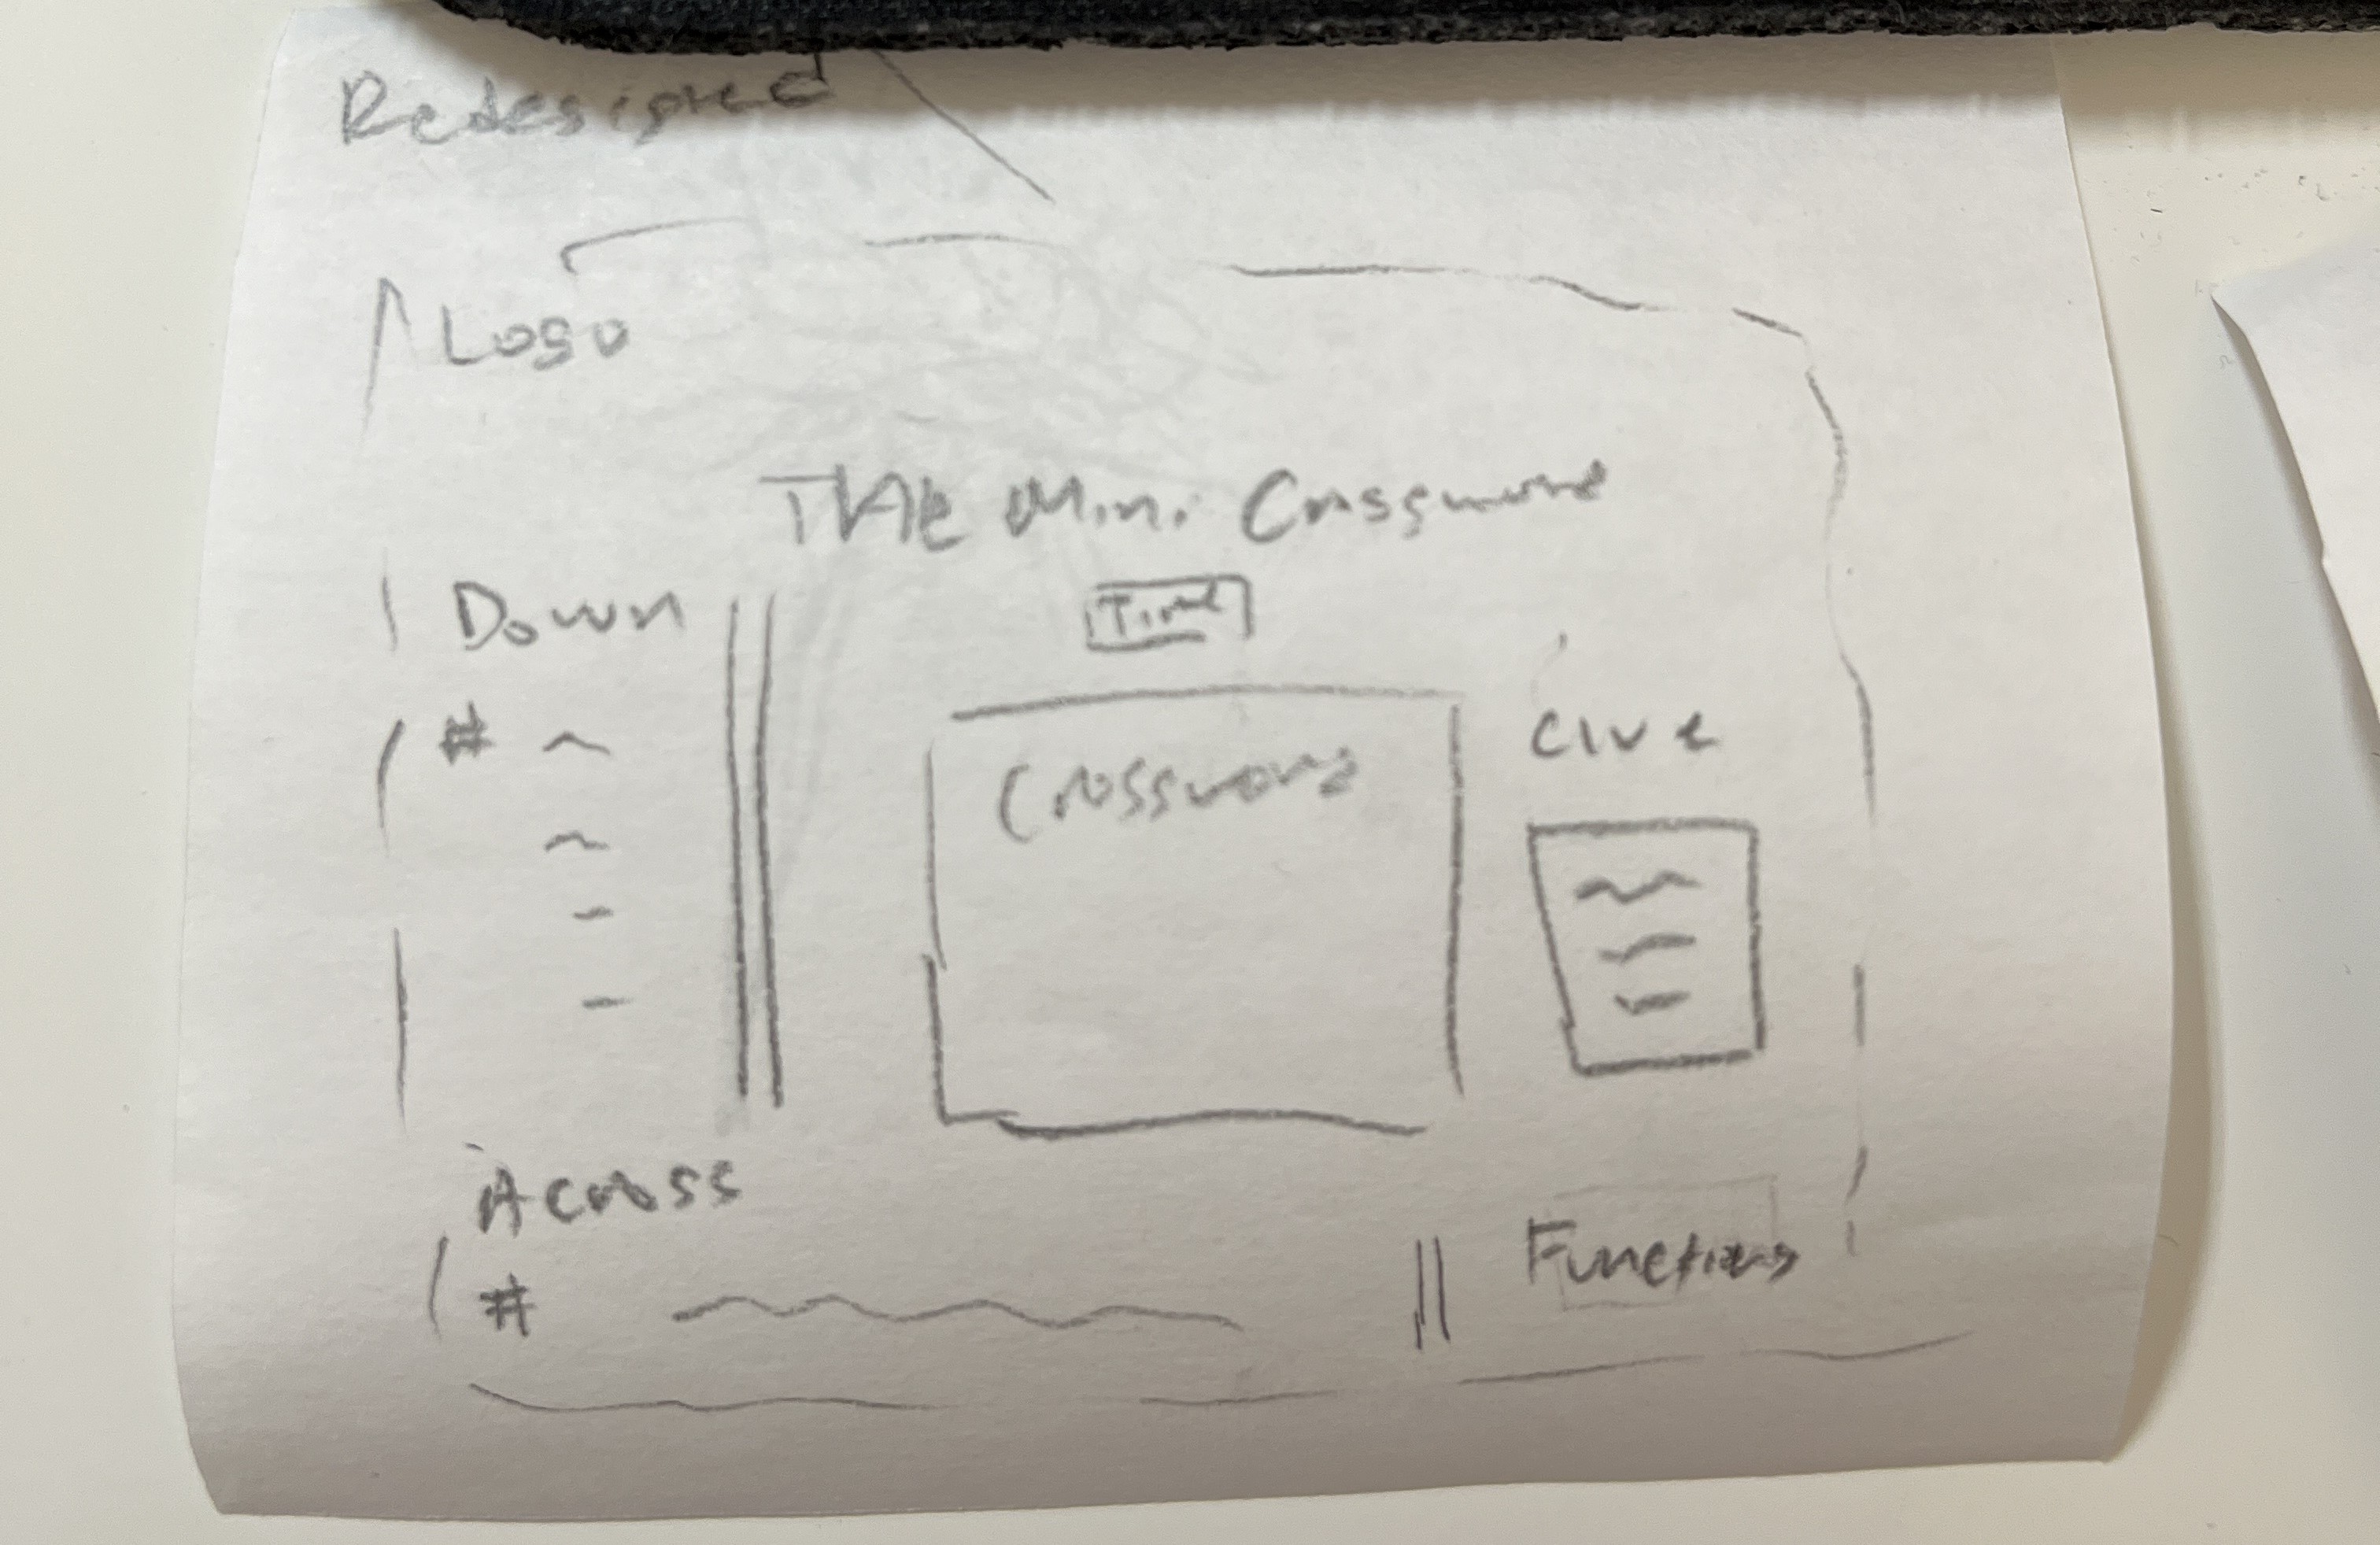 Redesigned
Logo
THE Mini Crossword
Down
Time
# 
Crossword
Clue
Across
#
Functions